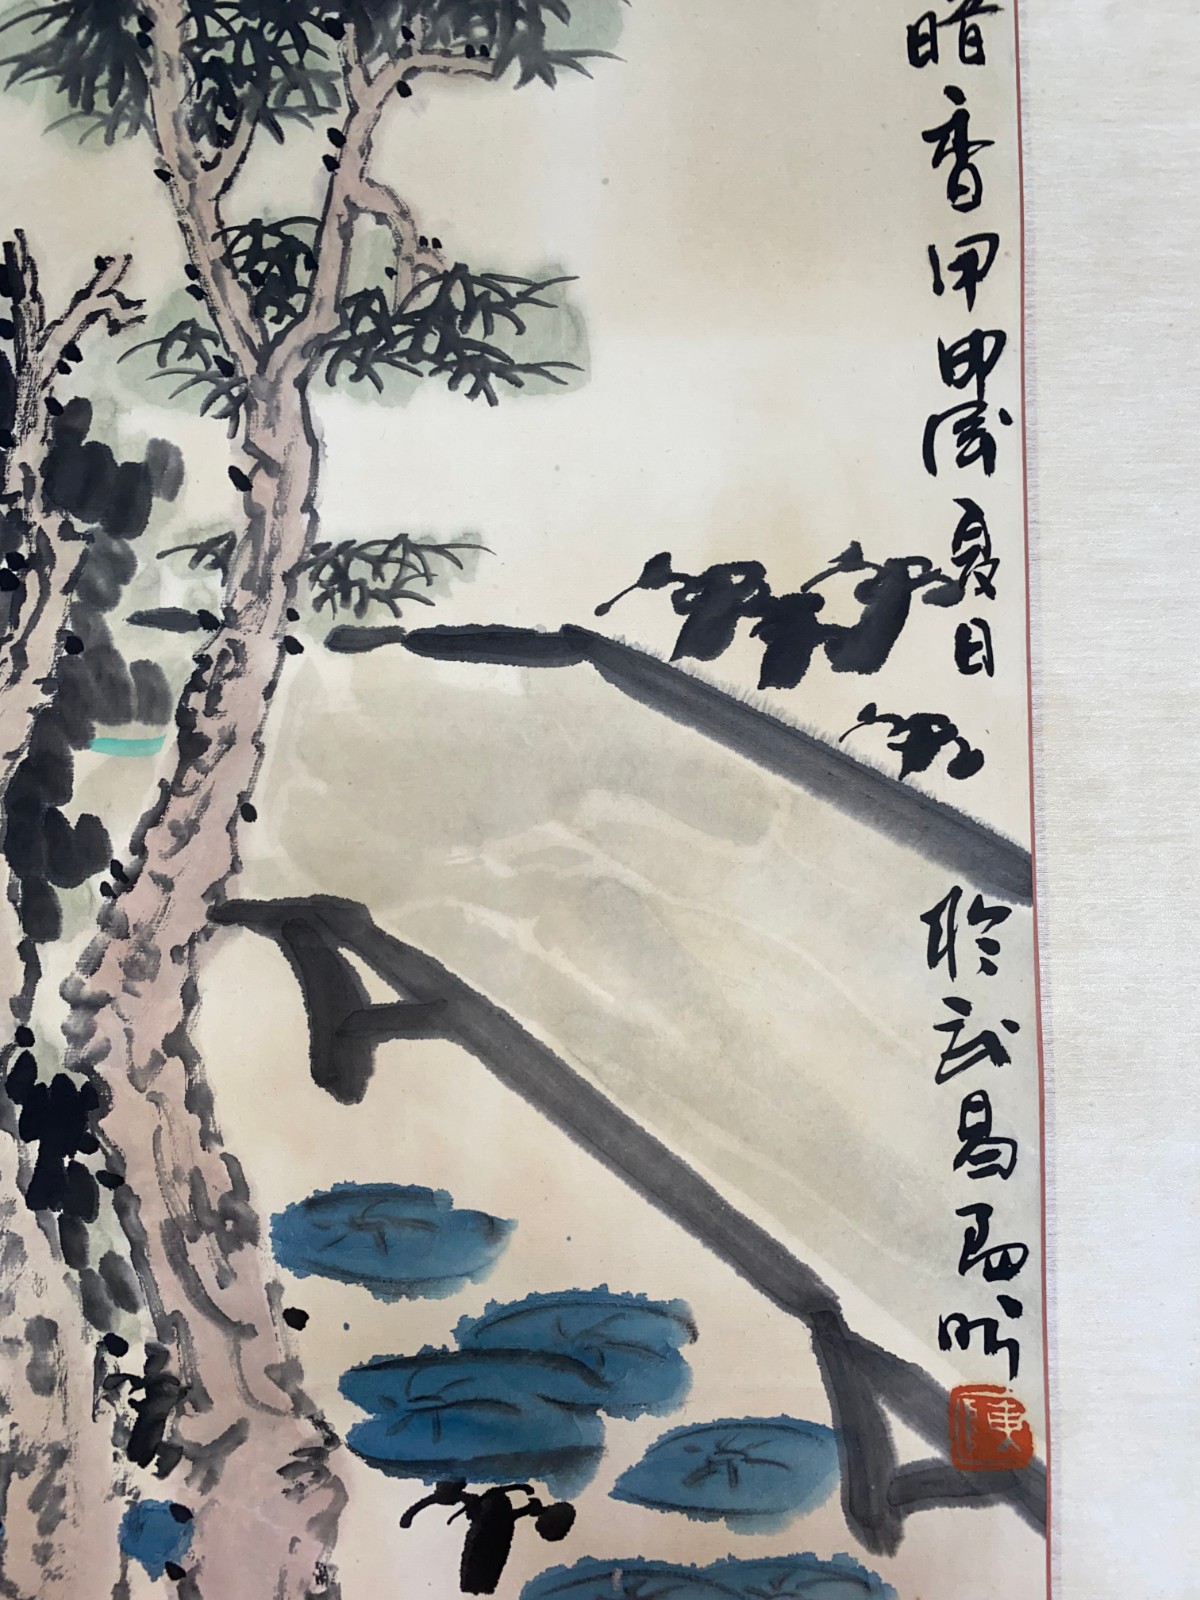 暗香甲申岁夏日於武昌昕
陳